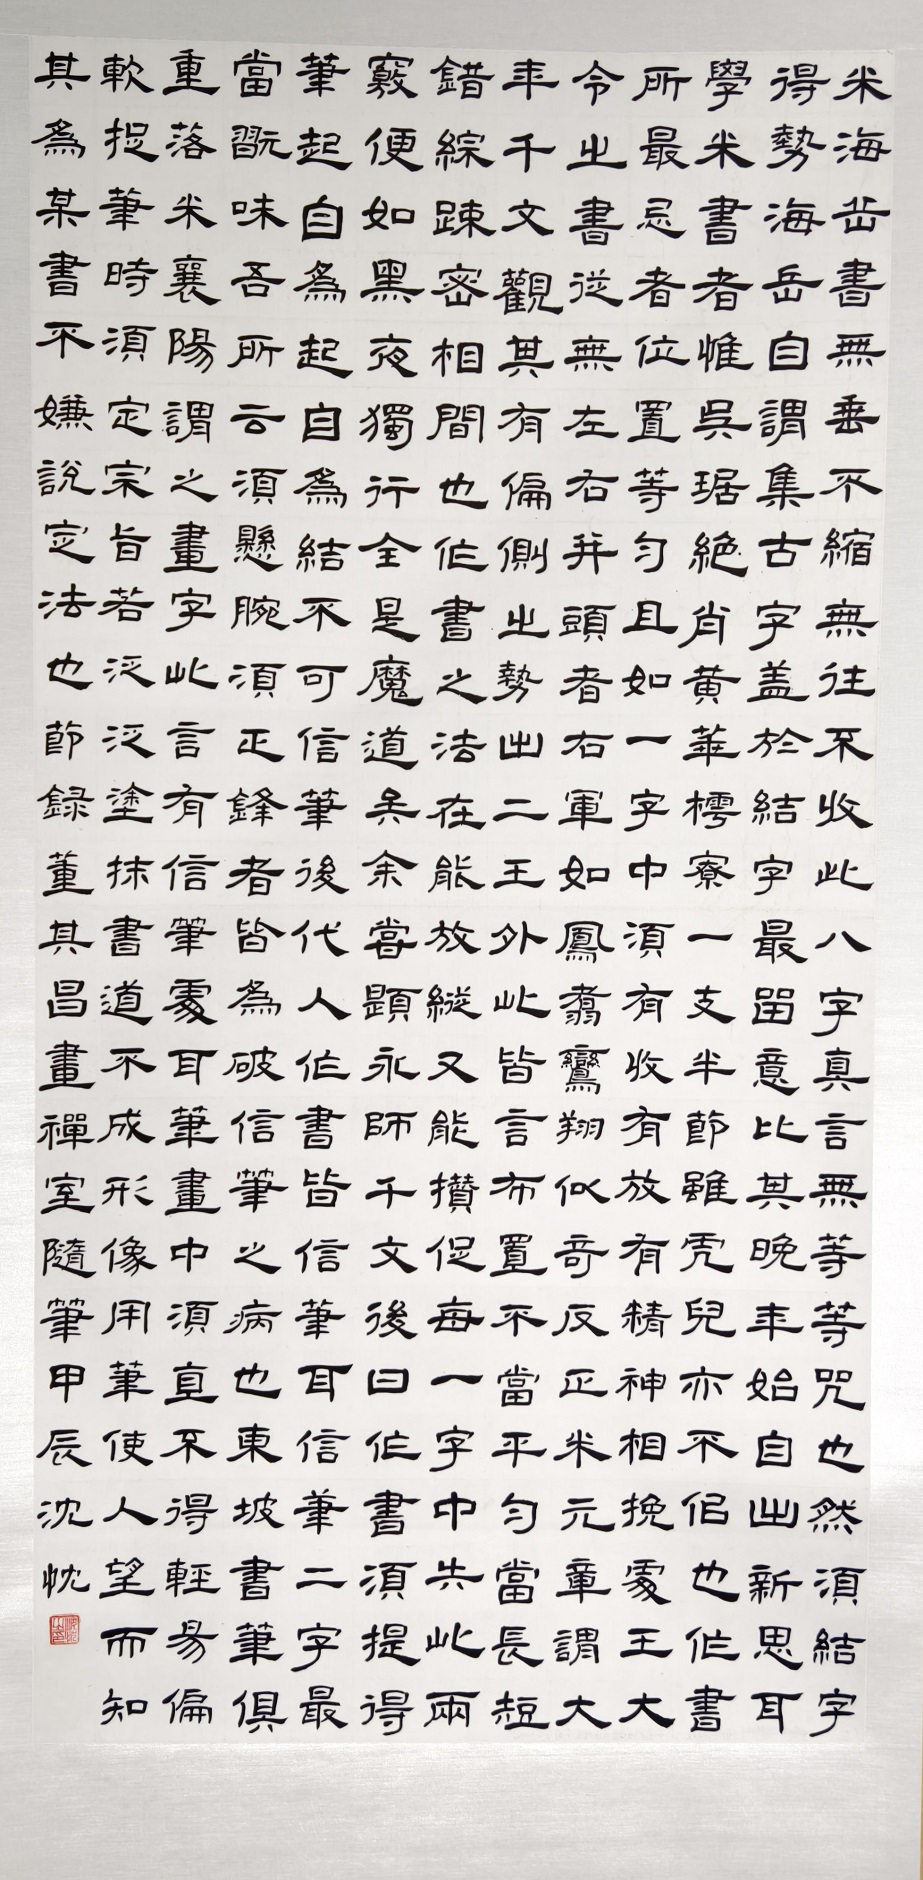 米海岳書無垂不縮無往不收此八字真言無等等咒也然須結字
得勢海岳自謂集古字盖於結字最留意比其晚年始自出新思耳
學米書者惟吳琚絶肖黄華樗寮一支半節雖禿兒亦不侣也作書
所最忌者位置等匀且如一字中須有收有放有精神相挽處王大
令之書從無左右并頭者右軍如鳳翥鸞翔似奇反正米元章謂大
年千文觀其有偏側之勢出二王外此皆言布置不當平匀當長短
錯綜踈密相間也作書之法在能放縱又能攢促每一字中失此兩
竅便如黑夜獨行全是魔道矣余嘗題永師千文後曰作書須提得
筆起自為起自為結不可信筆後代人作書皆信筆耳信筆二字最
當翫味吾所云須懸腕須正鋒者皆為破信筆之病也東坡書筆俱
重落米襄陽謂之畫字此言有信筆處耳筆畫中須直不得輕易偏
軟捉筆時須定宗旨若泛泛塗抹書道不成形像用筆使人望而知
其為某書不嫌説定法也節録董其昌畫禪室隨筆甲辰沈忱